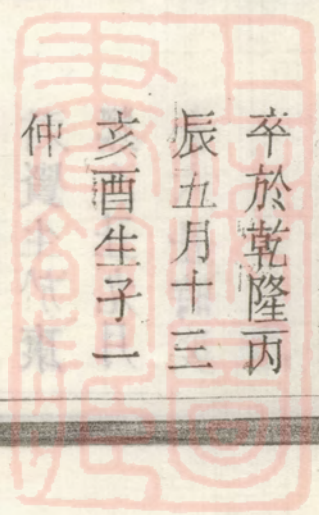 卒於乾隆丙
辰五月十三
亥酉生子一
仲